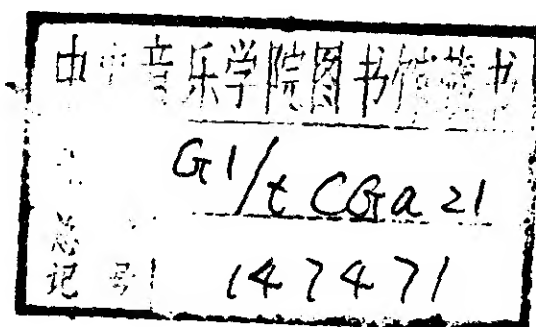 中央音乐学院图书馆藏书
G1/t CGa 21
总
记号 147471